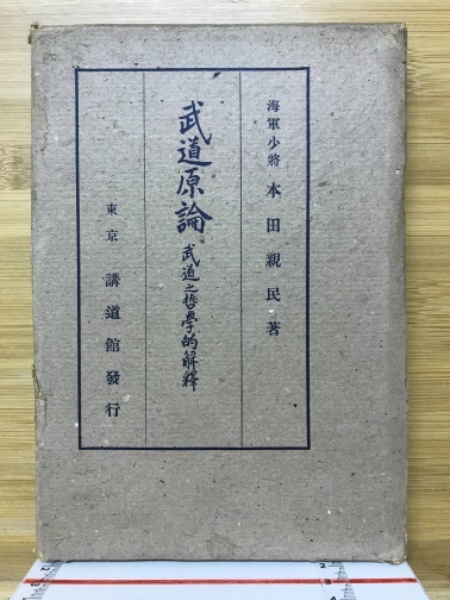 海軍少將 本田親民著
武道原論 武道之哲學的解釋
東京 講道館發行